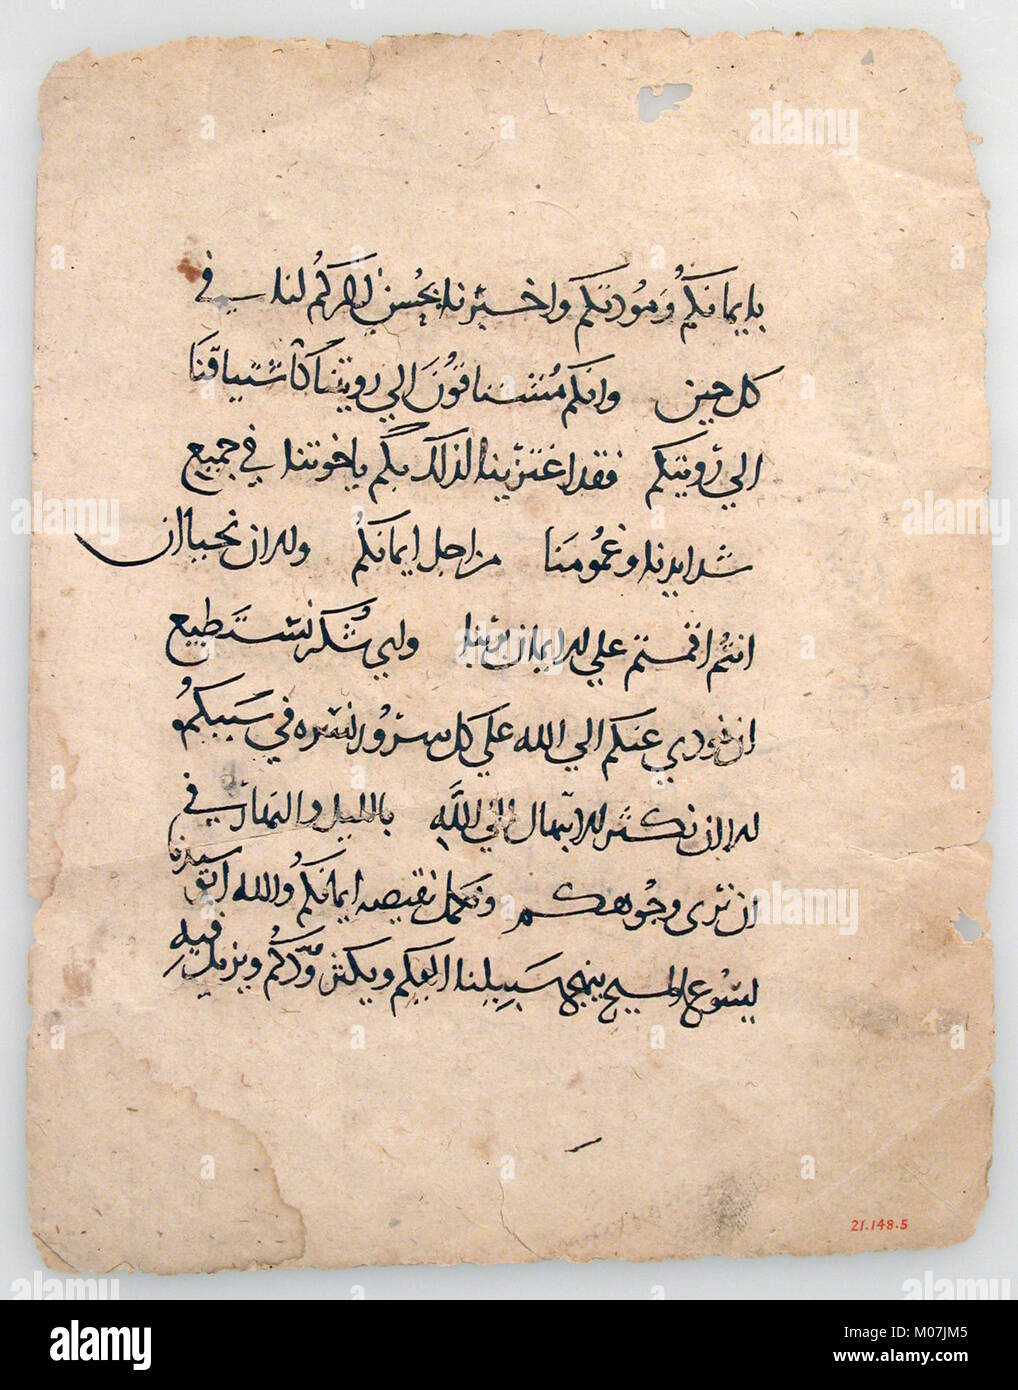 بايمانكم ومودتكم واخبرنا بحسن ذكركم لنا في
كل حين وانكم مشتاقون الي رويتنا كاشتياقنا
الي رويتكم فقد اعتزينا لذلك بكم ياخوتنا في جميع
شدايدنا وغمومنا من اجل ايمانكم والان نحيا ان
انتم اقمتم علي الايمان بربنا واي شكر نستطيع
ان نودي عنكم الي الله علي كل سرور نسره في سببكم
الا ان نكثر الابتهال الي الله بالليل والنهار في
ان نري وجوهكم ونكمل نقيصه ايمانكم والله ابونا وسيدنا
يسوع المسيح ينهج سبيلنا اليكم ويكثر ودكم ويزيدكم فيه
21.148.5
alamy
Image ID: M07JM5
www.alamy.com